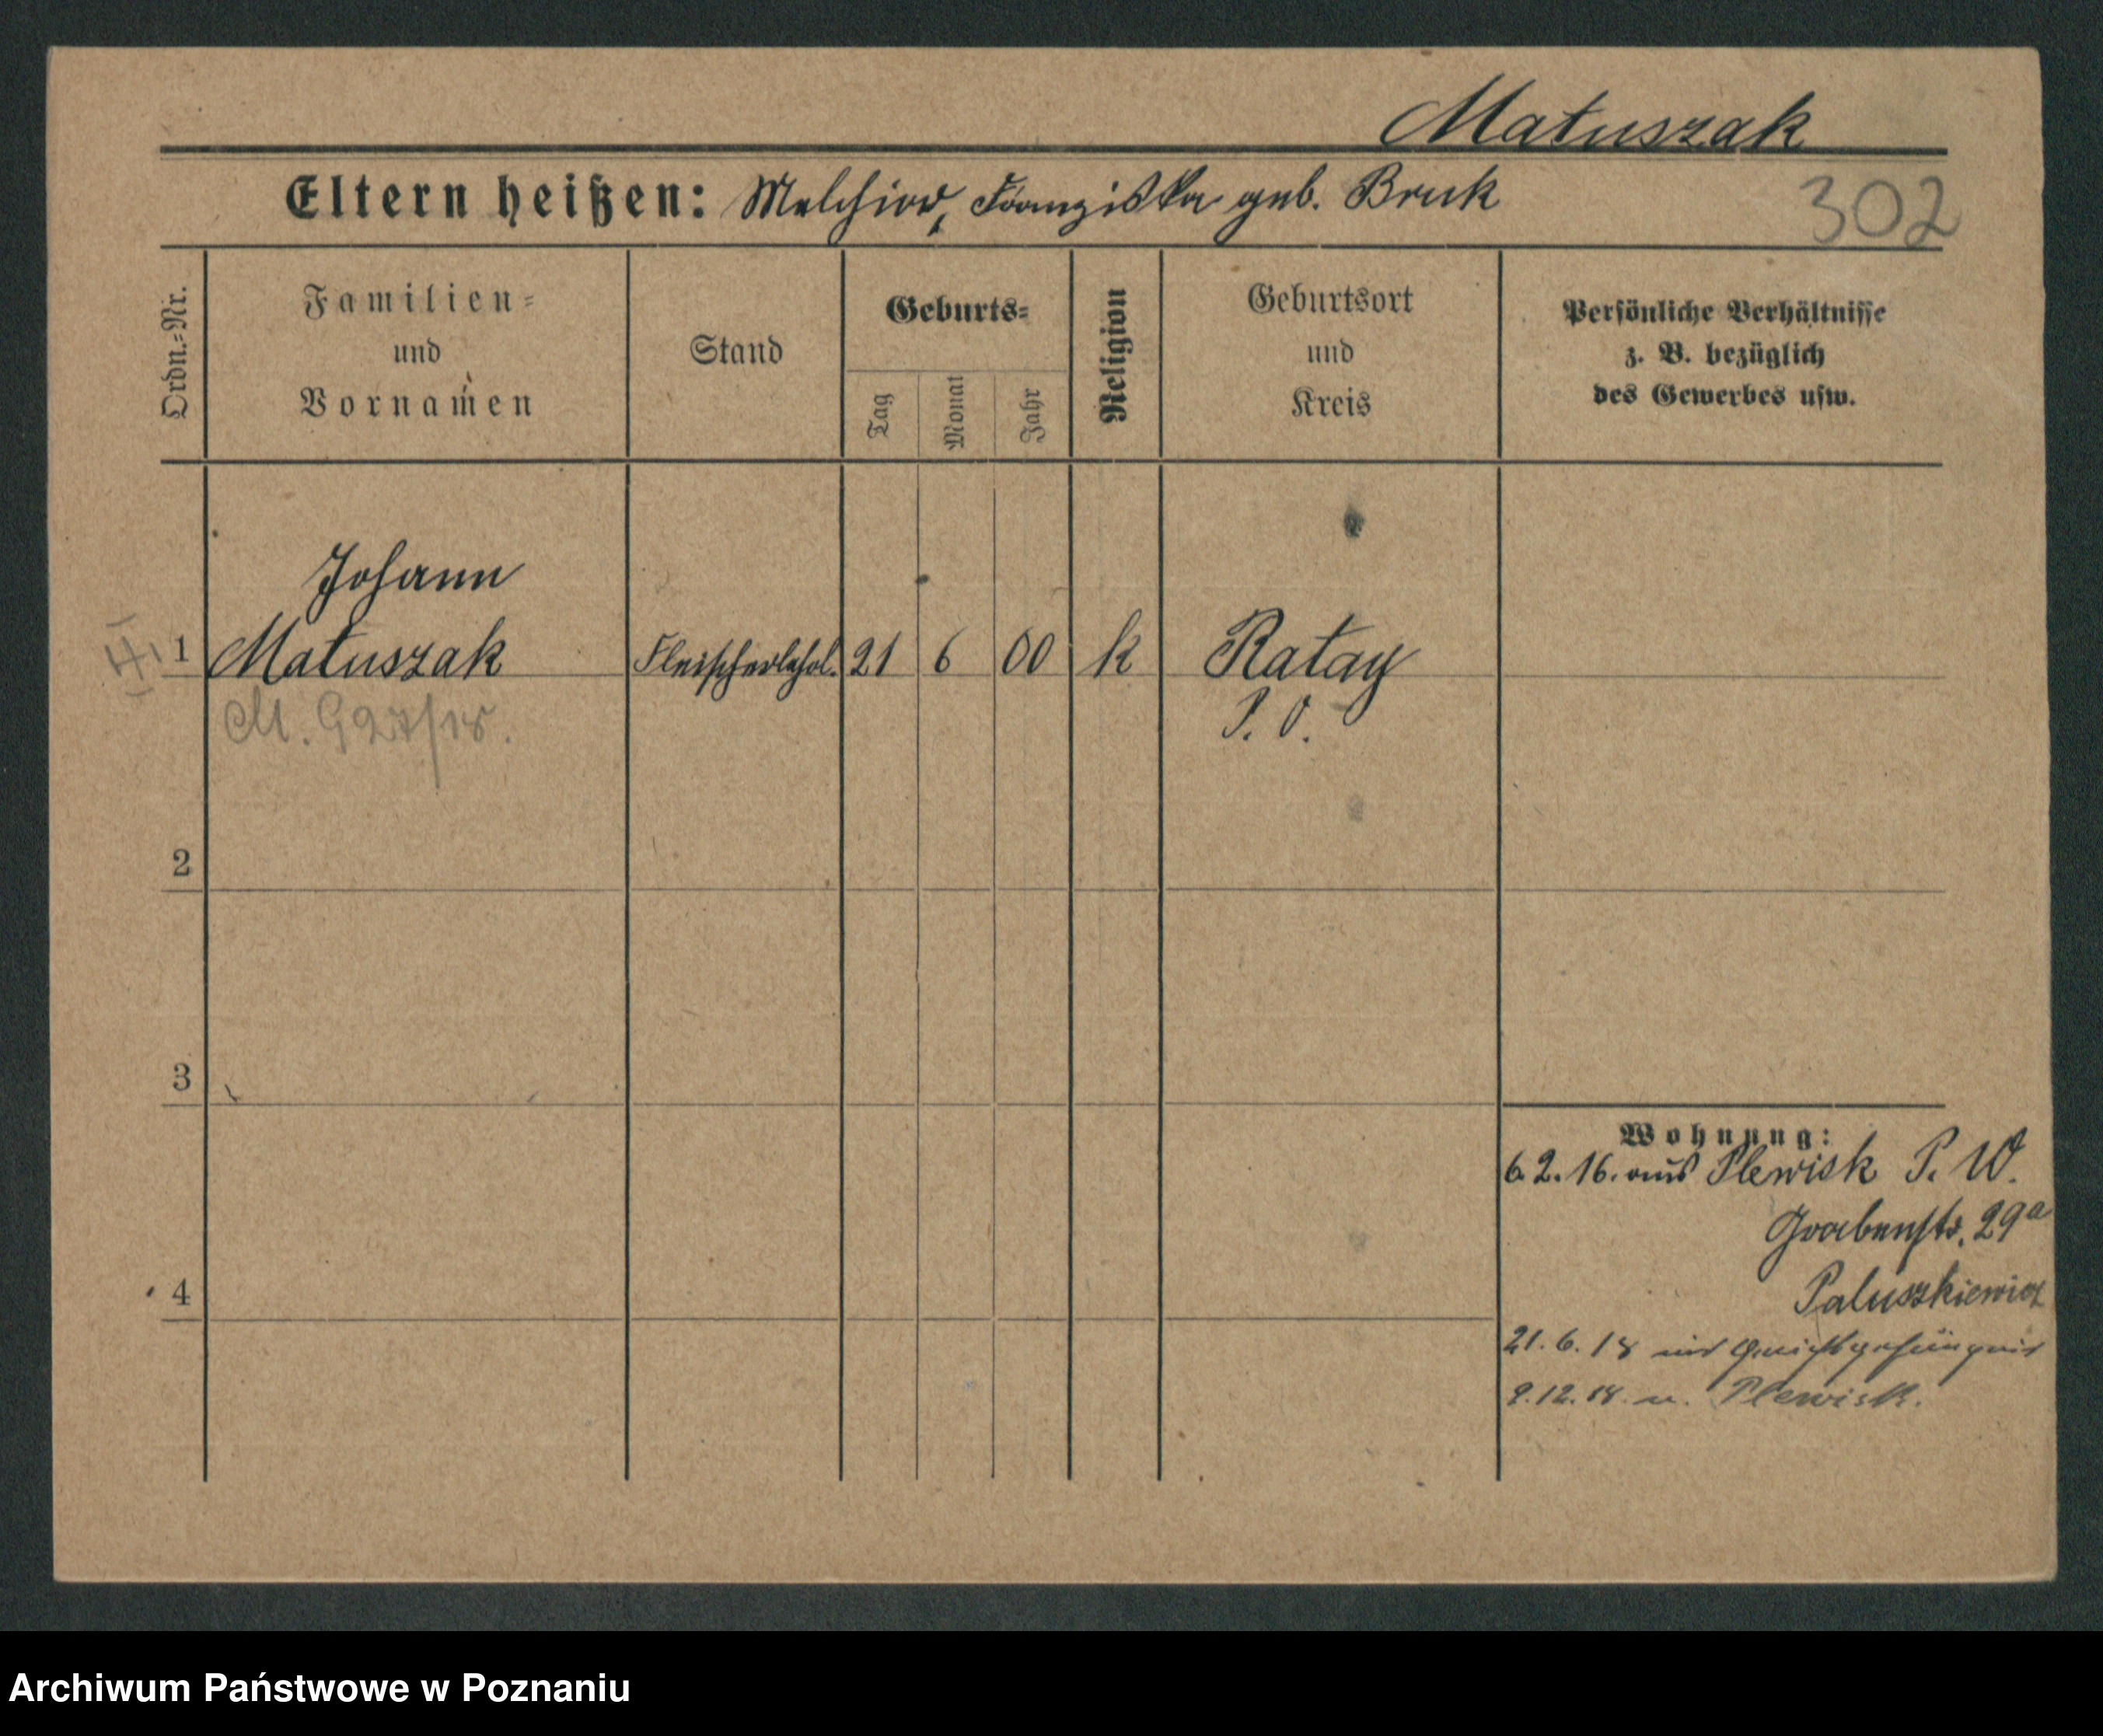 Matuszak
Eltern heißen: Melchior, Franziska geb. Bruk
302
Ordn.-Nr.
Familien-
und
Vornamen
Stand
Geburts-
Tag
Monat
Jahr
Religion
Geburtsort
und
Kreis
Persönliche Verhältnisse
z. B. bezüglich
des Gewerbes usw.
Johann
1 Matuszak Fleischerlehrl. 21 6 00 k Ratay
P. O.
M. 927/18.
2
3
4
Wohnung:
6.2.16. aus Plewisk P. W.
Grabenstr. 29a
Paluszkiewicz
21.6.18 ins Gerichtsgefängnis
9.12.18. n. Plewisk.
Archiwum Państwowe w Poznaniu